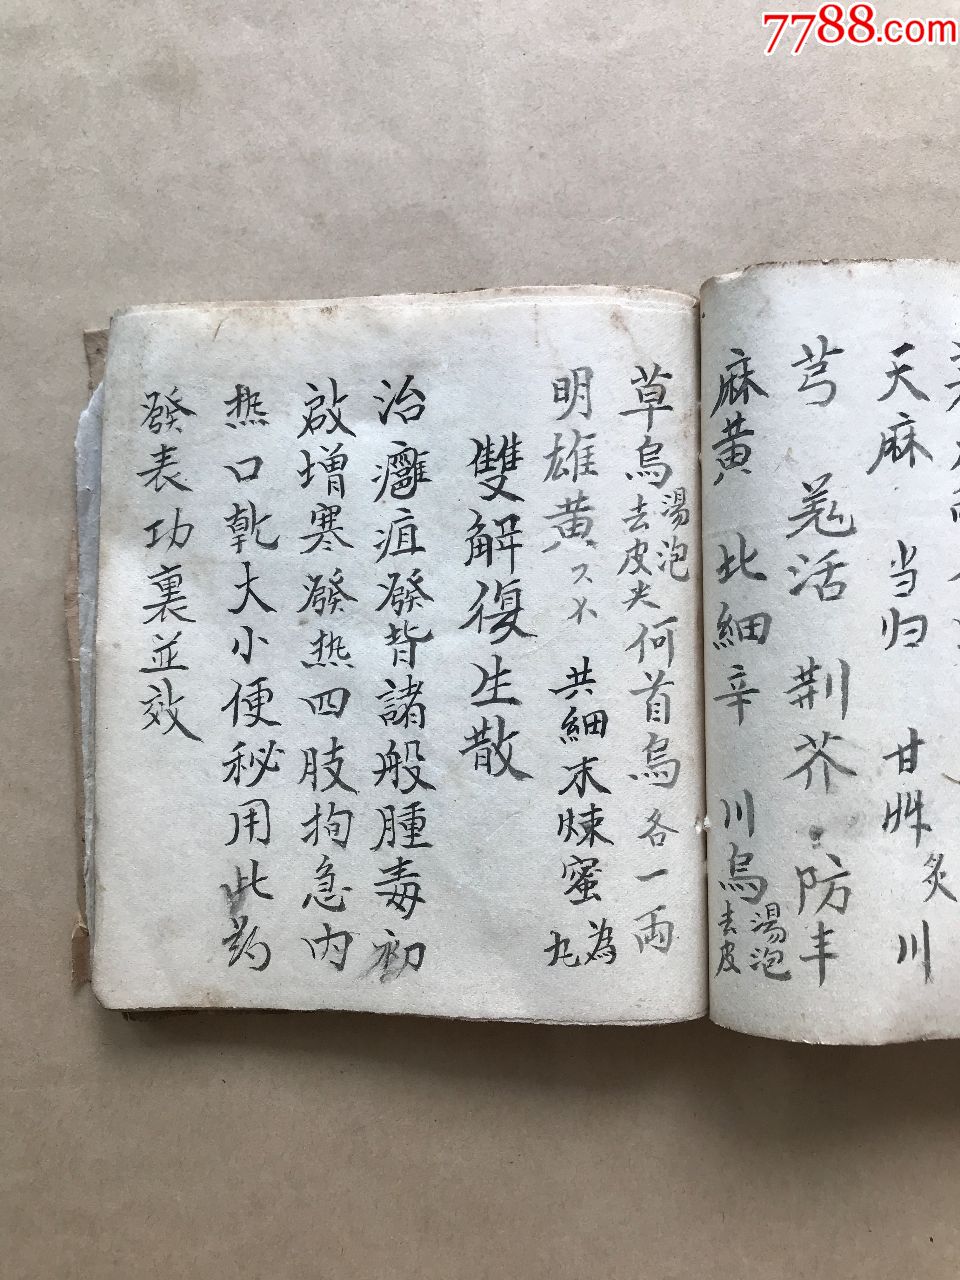 7788.com
天麻 当归 甘艸炙 川
芎 羌活 荆芥 防丰
麻黃 北細辛 川烏湯泡去皮
草烏湯泡去皮尖 何首烏各一兩
明雄黃 共細末煉蜜為丸
雙解復生散
治癰疽發背諸般腫毒初
啟增寒發热四肢拘急內
热口乾大小便秘用此药
發表功裏並效